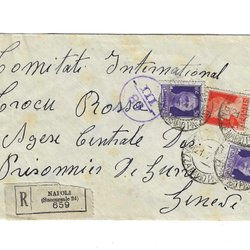 Comitati International
Croce Rosso
Agese Centrale Des
Prisonnier de Guerre
Genève
R
NAPOLI
(Succursale 24)
659
III